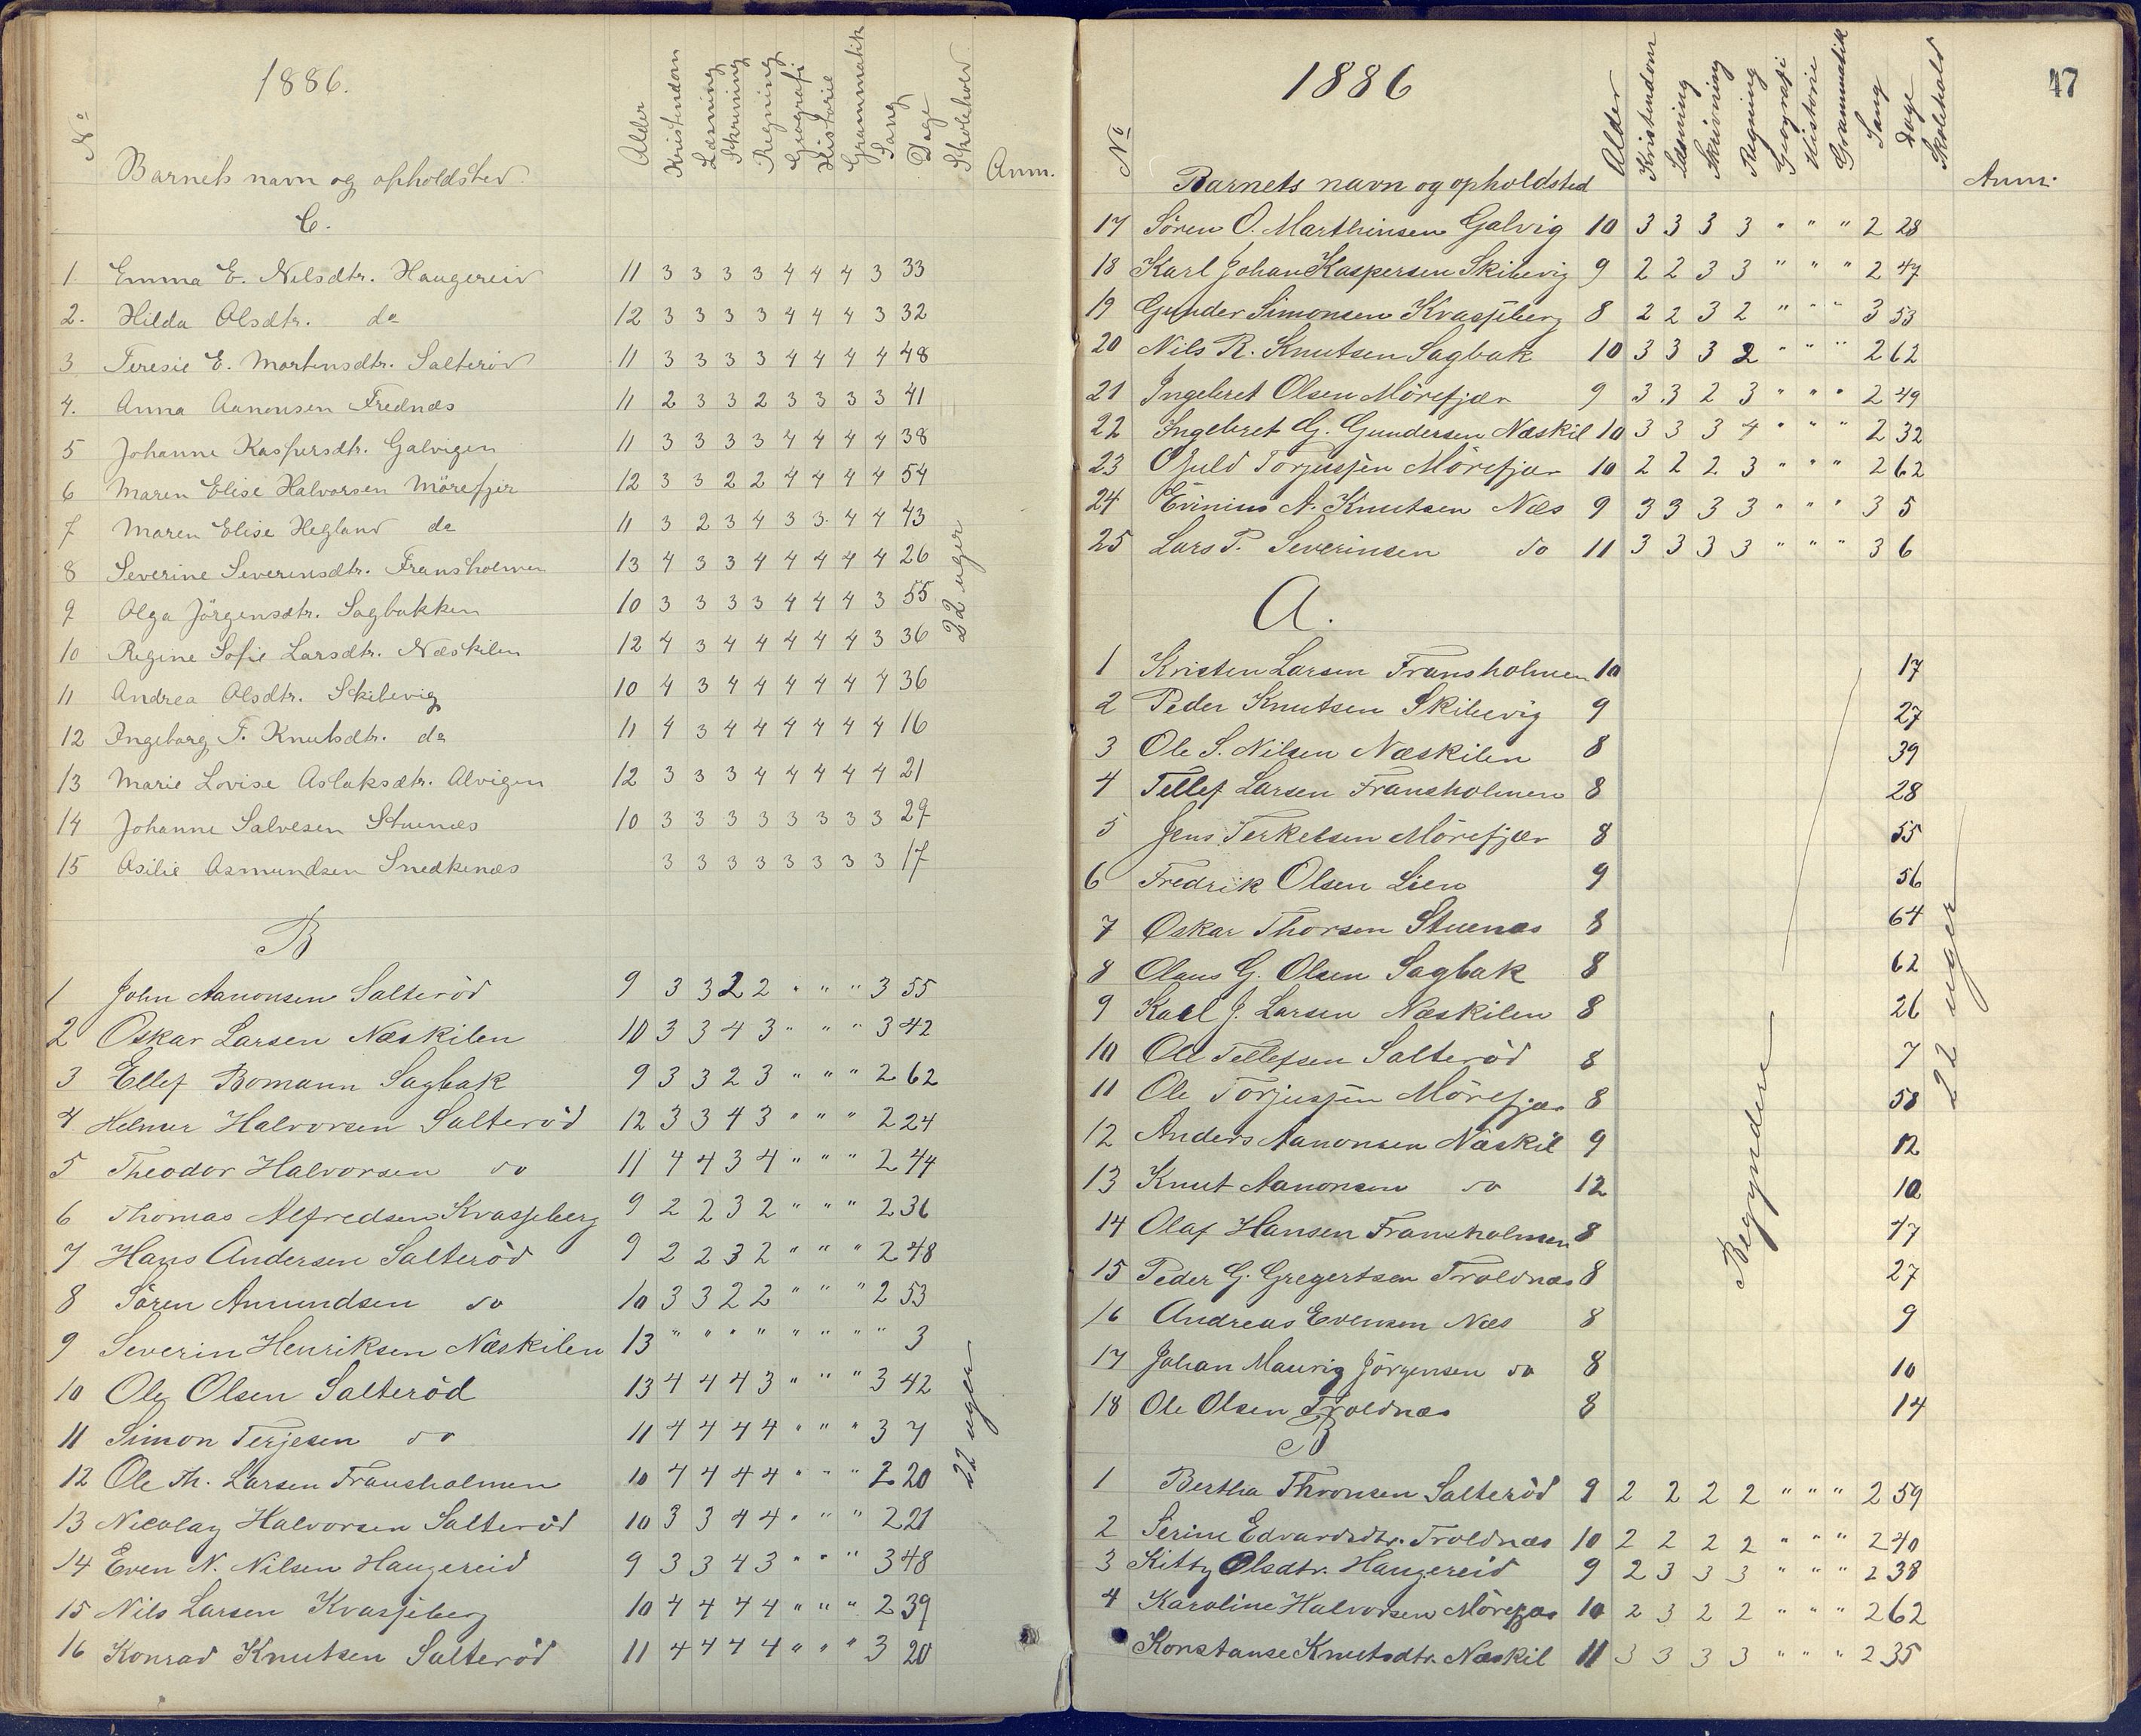 1886.
No Barnets navn og opholdsted. Alder Kristendom Læsning Skrivning Regning Geografi Historie Grammatik Sang Dage Skolehold Anm.
C.
1 Emma E. Nilsdtr. Haugereid 11 3 3 3 3 4 4 4 3 33
2. Hilda Olsdtr. do 12 3 3 3 3 4 4 4 3 32
3 Teresie E. Martensdtr. Salterød 11 3 3 3 3 4 4 4 4 48
4. Anna Aanonsen Frednæs 11 2 3 3 2 3 3 3 3 41
5 Johanne Kaspersdtr. Galvigen 11 3 3 3 3 4 4 4 4 38
6 Maren Elise Halvorsen Mörefjer 12 3 3 2 2 4 4 4 4 54
7 Maren Elise Hegland do 11 3 2 3 4 3 3. 4 4 43
8 Severine Severinsdtr. Fransholmen 13 4 3 3 4 4 4 4 4 26
9 Olga Jörgensdtr. Sagbakken 10 3 3 3 3 4 4 4 3 55
10 Regine Sofie Larsdtr. Næskilen 12 4 3 4 4 4 4 4 3 36
11 Andrea Olsdtr. Skibevig 10 4 3 4 4 4 4 4 4 36
12 Ingeborg T. Knutsdtr. do 11 4 3 4 4 4 4 4 4 16
13 Marie Lovise Aslaksdtr. Alvigen 12 3 3 3 4 4 4 4 4 21
14 Johanne Salvesen Stuenæs 10 3 3 3 3 3 3 3 3 29
15 Asilie Asmundsen Snedkenæs 3 3 3 3 3 3 3 3 17
22 uger
B
1 John Aanonsen Salteröd 9 3 3 2 2 " " " 3 55
2 Oskar Larsen Næskilen 10 3 3 4 3 " " " 3 42
3 Ellef Bomann Sagbak 9 3 3 2 3 " " " 2 62
4 Helmer Halvorsen Salteröd 12 3 3 4 3 " " " 2 24
5 Theodor Halvorsen do 11 4 4 3 4 " " " 2 44
6 Thomas Alfredsen Kvasjeberg 9 2 2 3 2 " " " 2 36
7 Hans Andersen Salteröd 9 2 2 3 2 " " " 2 48
8 Sören Amundsen do 10 3 3 2 2 " " " 2 53
9 Severin Henriksen Næskilen 13 " " " " " " " " 3
10 Ole Olsen Salteröd 13 4 4 4 3 " " " 3 42
11 Simon Terjesen do 11 4 4 4 4 " " " 3 7
12 Ole Th. Larsen Fransholmen 10 4 4 4 4 " " " 2 20
13 Nicolay Halvorsen Salteröd 10 3 3 4 4 " " " 2 21
14 Even N. Nilsen Haugereid 9 3 3 4 3 " " " 3 48
15 Nils Larsen Kvasjeberg 10 4 4 4 4 " " " 2 39
16 Konrad Knutsen Salteröd 11 4 4 4 4 " " " 3 20
22 uger
47
1886
No Barnets navn og opholdsted Alder Kristendom Læsning Skrivning Regning Geografi Historie Grammatik Sang Dage Skolehold Anm.
17 Sören O. Marthinsen Galvig 10 3 3 3 3 " " " 2 28
18 Karl Johan Kaspersen Skibevig 9 2 2 3 3 " " " 2 47
19 Gunder Simonsen Kvasjeberg 8 2 2 3 2 " " " 3 53
20 Nils R. Knutsen Sagbak 10 3 3 3 2 " " " 2 62
21 Ingebret Olsen Mörefjær 9 3 3 2 3 " " " 2 49
22 Ingebret G. Gundersen Næskil 10 3 3 3 4 " " " 2 32
23 Oluld Torjussen Mörefjær 10 2 2 2 3 " " " 2 62
24 Evinius A. Knutsen Næs 9 3 3 3 3 " " " 3 5
25 Lars P. Severinsen do 11 3 3 3 3 " " " 3 6
A.
1 Kristen Larsen Fransholmen 10 17
2 Peder Knutsen Skibevig 9 27
3 Ole S. Nilsen Næskilen 8 39
4 Tellef Larsen Fransholmen 8 28
5 Jens Terkelsen Mörefjær 8 55
6 Fredrik Olsen Lien 9 56
7 Oskar Thorsen Stuenæs 8 64
8 Olaus G. Olsen Sagbak 8 62
9 Karl J. Larsen Næskilen 8 26
10 Ole Tellefsen Salteröd 8 7
11 Ole Torjussen Mörefjær 8 58
12 Anders Aanonsen Næskil 9 12
13 Knut Aanonsen do 12 10
14 Olaf Hansen Fransholmen 8 47
15 Peder G. Gregertsen Troldnæs 8 27
16 Andreas Evensen Næs 8 9
17 Johan Maurig Jörgensen do 8 10
18 Ole Olsen Troldnæs 8 14
Begyndere
22 uger
B
1 Bertha Thronsen Salteröd 9 2 2 2 2 " " " 2 59
2 Serine Edvardsdtr. Troldnæs 10 2 2 2 2 " " " 2 40
3 Kitty Olsdtr. Haugereid 9 2 3 3 3 " " " 2 38
4 Karoline Halvorsen Mörefjær 10 2 3 2 2 " " " 2 62
Konstanse Knutsdtr. Næskil 11 3 3 3 3 " " " 2 35